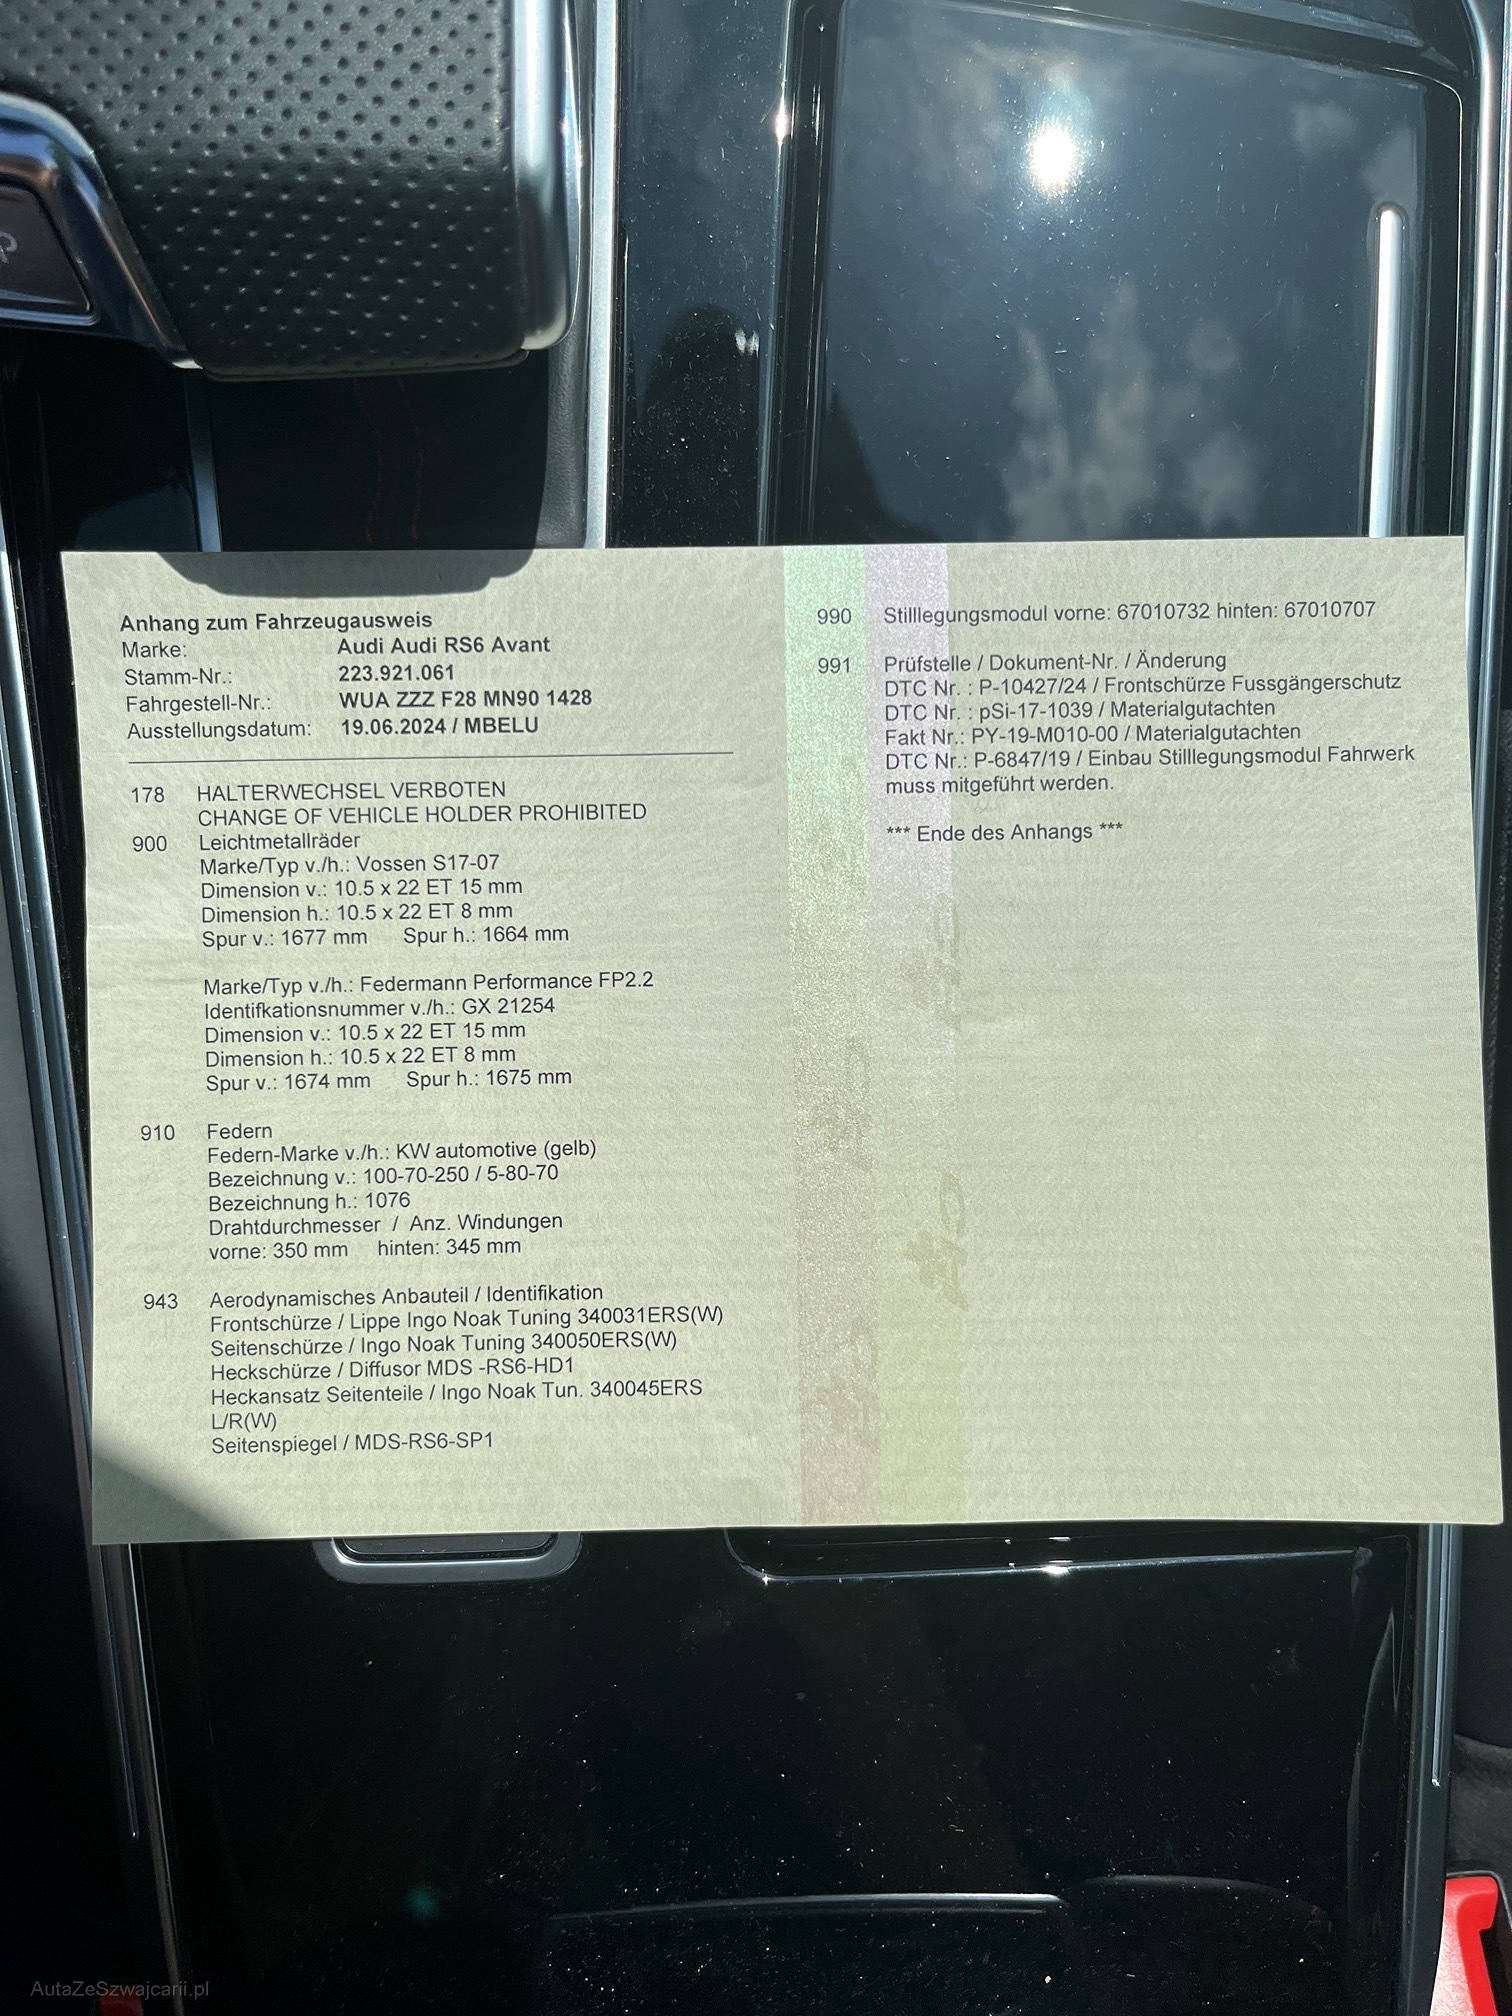 Anhang zum Fahrzeugausweis
Marke: Audi Audi RS6 Avant
Stamm-Nr.: 223.921.061
Fahrgestell-Nr.: WUA ZZZ F28 MN90 1428
Ausstellungsdatum: 19.06.2024 / MBELU
178 HALTERWECHSEL VERBOTEN
CHANGE OF VEHICLE HOLDER PROHIBITED
900 Leichtmetallräder
Marke/Typ v./h.: Vossen S17-07
Dimension v.: 10.5 x 22 ET 15 mm
Dimension h.: 10.5 x 22 ET 8 mm
Spur v.: 1677 mm Spur h.: 1664 mm
Marke/Typ v./h.: Federmann Performance FP2.2
Identifkationsnummer v./h.: GX 21254
Dimension v.: 10.5 x 22 ET 15 mm
Dimension h.: 10.5 x 22 ET 8 mm
Spur v.: 1674 mm Spur h.: 1675 mm
910 Federn
Federn-Marke v./h.: KW automotive (gelb)
Bezeichnung v.: 100-70-250 / 5-80-70
Bezeichnung h.: 1076
Drahtdurchmesser / Anz. Windungen
vorne: 350 mm hinten: 345 mm
943 Aerodynamisches Anbauteil / Identifikation
Frontschürze / Lippe Ingo Noak Tuning 340031ERS(W)
Seitenschürze / Ingo Noak Tuning 340050ERS(W)
Heckschürze / Diffusor MDS -RS6-HD1
Heckansatz Seitenteile / Ingo Noak Tun. 340045ERS
L/R(W)
Seitenspiegel / MDS-RS6-SP1
990 Stilllegungsmodul vorne: 67010732 hinten: 67010707
991 Prüfstelle / Dokument-Nr. / Änderung
DTC Nr. : P-10427/24 / Frontschürze Fussgängerschutz
DTC Nr. : pSi-17-1039 / Materialgutachten
Fakt Nr.: PY-19-M010-00 / Materialgutachten
DTC Nr.: P-6847/19 / Einbau Stilllegungsmodul Fahrwerk
muss mitgeführt werden.
*** Ende des Anhangs ***
AutaZeSzwajcarii.pl